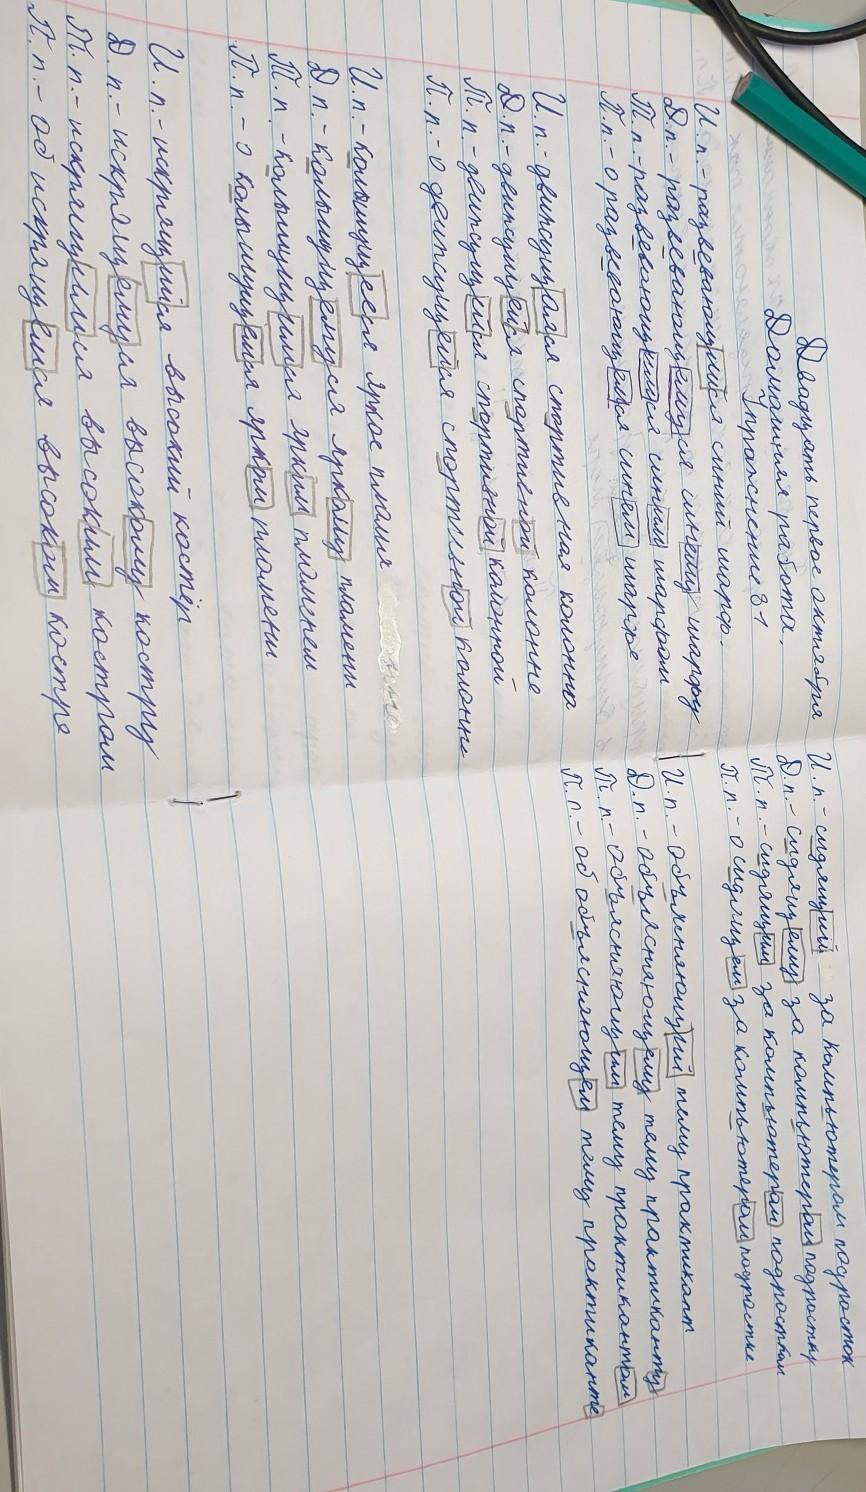 Двадцать первое октября
Домашняя работа.
Упражнение 81
И.п.- развевающийся синий шарф.
Д.п.- развевающемуся синему шарфу
Т.п.- развевающимся синим шарфом
П.п.- о развевающемся синем шарфе
И.п.- движущаяся спортивная колонна
Д.п.- движущейся спортивной колонне
Т.п.- движущейся спортивной колонной
П.п.- о движущейся спортивной колонне
И.п.- колышущееся яркое пламя
Д.п.- колышущемуся яркому пламени
Т.п.- колышущимся ярким пламенем
П.п.- о колышущемся ярком пламени
И.п.- искрящийся высокий костёр
Д.п.- искрящемуся высокому костру
Т.п.- искрящимся высоким костром
П.п.- об искрящемся высоком костре
И.п.- сидящий за компьютером подросток
Д.п.- сидящему за компьютером подростку
Т.п.- сидящим за компьютером подростком
П.п.- о сидящем за компьютером подростке
И.п.- объясняющий тему практикант
Д.п.- объясняющему тему практиканту
Т.п.- объясняющим тему практикантом
П.п.- об объясняющем тему практиканте